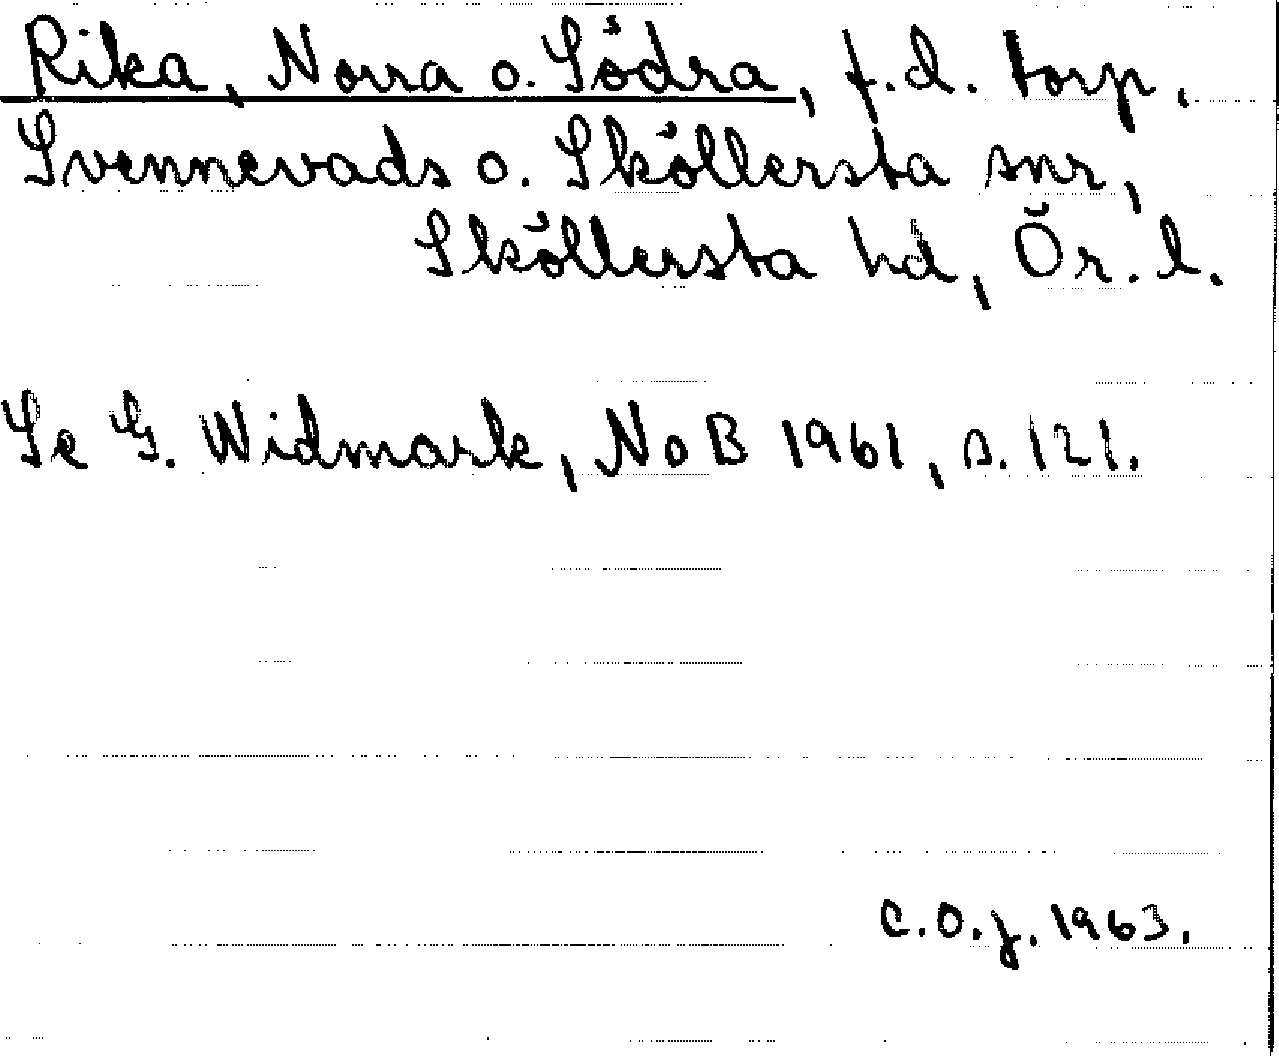 Rika, Norra o. Södra, f.d. torp,
Svennevads o. Sköllersta snr,
Sköllersta hd, Ör. l.
Se G. Widmark, NoB 1961, s. 121.
C.O.J. 1963.